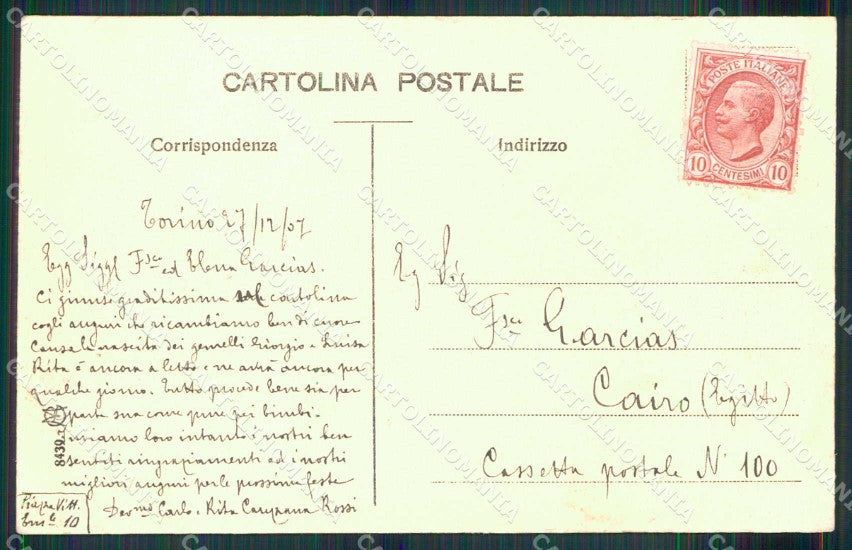 CARTOLINA POSTALE
POSTE ITALIANE
10 CENTESIMI 10
Corrispondenza
Indirizzo
Torino 27/12/07
Egg Sigg Fsco ed Elena Garcias.
Ci giunse graditissima cartolina
cogli auguri che ricambiamo ben di cuore
Causa la nascita dei gemelli Giorgio e Luisa
Rita è ancora a letto e ne avrà ancora per
qualche giorno. Tutto procede bene sia per
parte sua come pure pei bimbi.
inviamo loro intanto i nostri ben
sentiti ringraziamenti ed i nostri
migliori auguri per le prossime feste
Dev mo Carlo e Rita Rossi
Piazza Vitt.
Em le 10
8439
Eg Sig
Fsco Garcias
Cairo (Egitto)
Cassetta postale N° 100
CARTOLINOMANIA